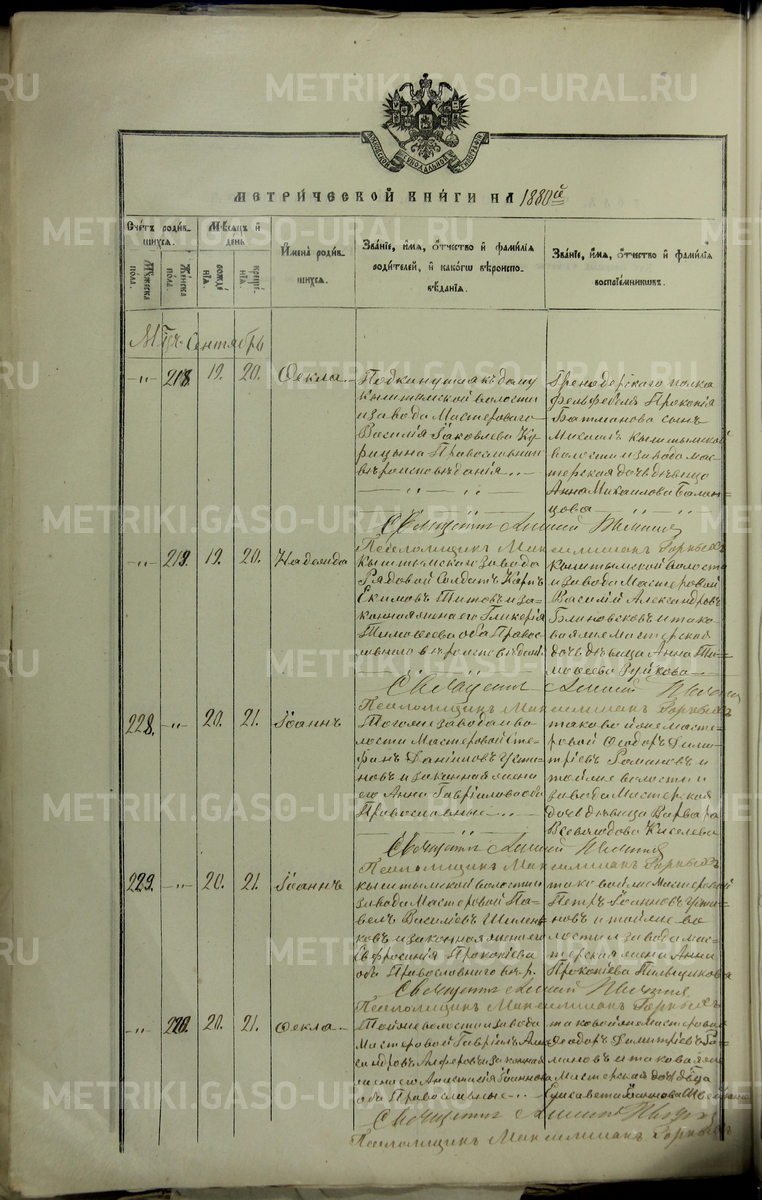 METRIKI.GASO-URAL.RU
МЕТРИ́ЧЕСКОЙ КНИ́ГИ НА 1880й
Сче́тъ роди́в-
шихся.
Му́жеска
пола.
Же́нска
пола.
Мѣ́сяцъ и
де́нь
рожде́
нїя.
креще́
нїя.
И́мена роди́в-
шихся.
Зва́нїе, и́мя, о́тчество и фами́лїя
роди́телей, и како́гѡ вѣроиспо-
вѣ́данїя.
Зва́нїе, и́мя, о́тчество и фами́лїя
воспрїе́мникѡвъ.
Мцъ Сентябрь
-"- 218 19. 20. Ѳекла.
Подкинутая къ дому
Кыштымской волости
и завода Мастероваго
Василія Іаковлева Ку-
рицына Православнаго
вѣроисповѣданія
Гренадерскаго полка
Фельфебель Прокопія
Батманова сынъ
Михаилъ Кыштымской
волости и завода мас-
терская дочь дѣвица
Анна Михаилова Балан-
цова
Священникъ Алексій
Псаломщикъ Максимилианъ Горныхъ
-"- 219. 19. 20. Надежда
Кыштымскаго завода
Рядовой Солдатъ Карпъ
Екимовъ Титовъ и за-
конная жена его Гликерія
Тимоѳеева оба Право-
славнаго вѣроисповѣданія
Кыштымской волости
и завода Мастеровой
Василій Александровъ
Блиновсковъ и тако-
вая же Мастерская
дочь дѣвица Анна Ти-
моѳеева Зуйкова
Священникъ Алексій
Псаломщикъ Максимилианъ Горныхъ
228. -"- 20. 21. Іоаннъ
Тогоже завода и во-
лости Мастеровой Сте-
фанъ Даніиловъ Усти-
новъ и законная жена
его Анна Гавріилова оба
Православные
таковой же масте-
ровой Ѳеодоръ Дими-
тріевъ Романовъ и
той же волости и
завода Мастерская
дочь дѣвица Варвара
Всеволодова Киселева
Священникъ Алексій
Псаломщикъ Максимилианъ Горныхъ
229. -"- 20. 21. Іоаннъ
Кыштымской волости и
завода Мастеровой Па-
велъ Василіевъ
и законная жена его
Евфросинія Прокопіева
оба Православнаго вѣр.
таковой же Мастеровой
Петръ Іоанновъ Усти-
новъ и той же во-
лости и завода мас-
терская жена Анна
Прокопіева Пильщикова
Священникъ Алексій
Псаломщикъ Максимилианъ Горныхъ
-"- 220. 20. 21. Ѳекла.
Той же волости и завода
Мастеровой Гавріилъ Але-
ксандровъ Алферовъ и законная
жена его Анастасія Іоаннова
оба Православные
таковой же мастеровой
Ѳеодоръ Димитріевъ Ро-
мановъ и таковая же
Мастерская дочь дѣвица
Елисавета Іоаннова
Священникъ Алексій
Псаломщикъ Максимилианъ Горныхъ